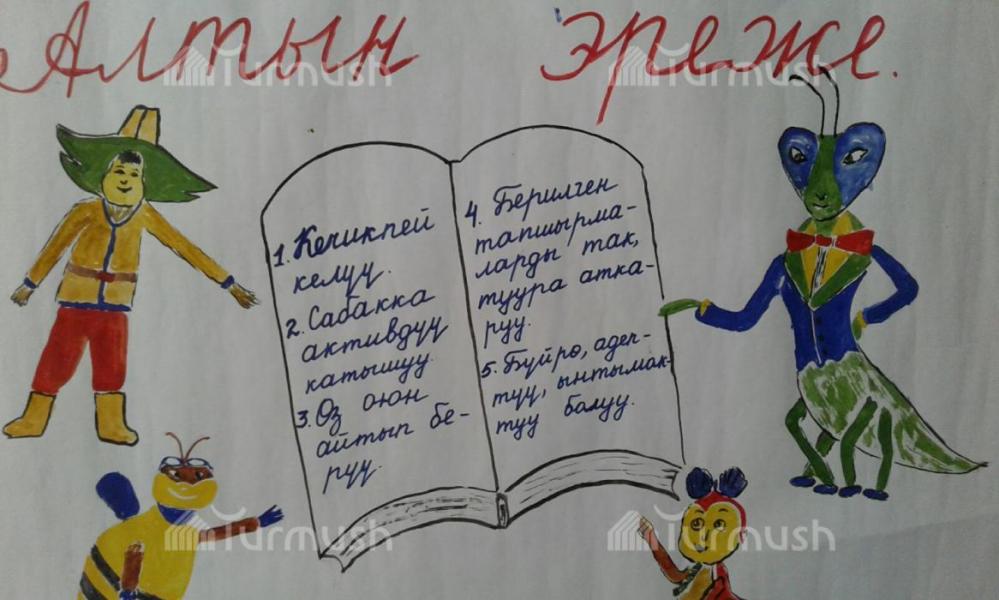 Алтын эреже.
1. Кечикпей
келүү.
2. Сабакка
активдүү
катышуу.
3. Өз оюн
айтып бе-
рүү.
4. Берилген
тапшырма-
ларды так,
туура атка-
руу.
5. Бүйрө, адеп-
түү, ынтымак-
туу болуу.
Turmush Turmush
Turmush Turmush